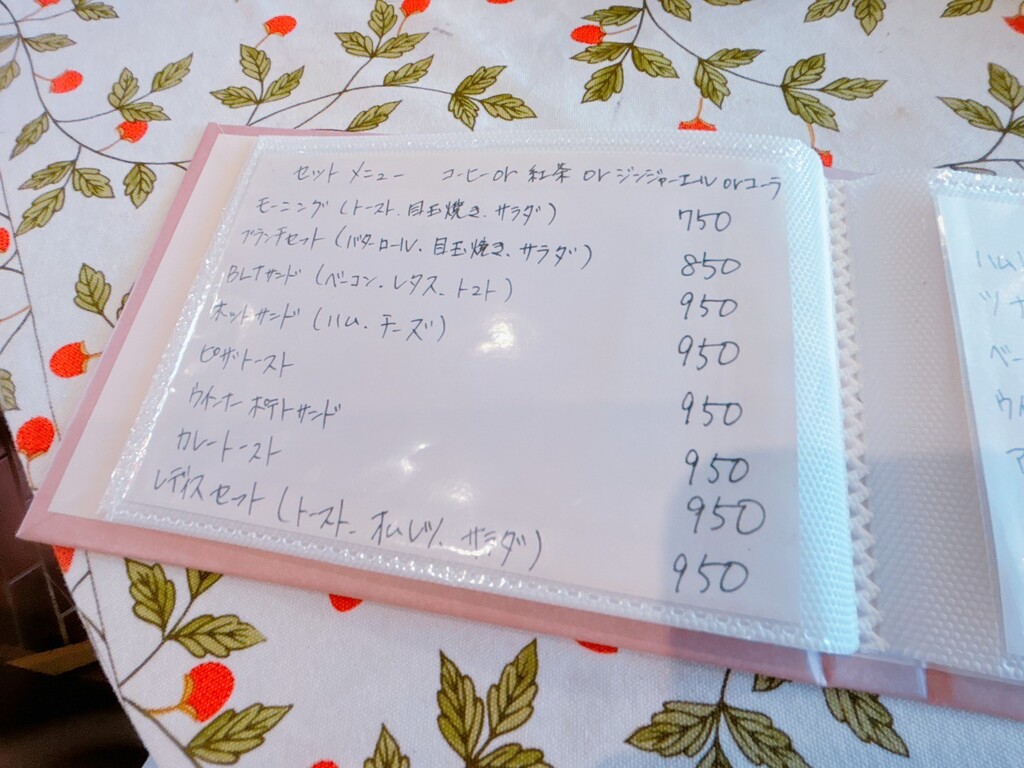 セット メニュー コーヒー or 紅茶 or ジンジャーエール or コーラ
モーニング (トースト、目玉焼き、サラダ) 750
ブランチセット (バターロール、目玉焼き、サラダ) 850
BLTサンド (ベーコン、レタス、トマト) 950
ホットサンド (ハム、チーズ) 950
ピザトースト 950
ウインナー ポテトサンド 950
カレートースト 950
レディスセット (トースト、オムレツ、サラダ) 950
ハム
ツナ
ベー
ウイ
ア